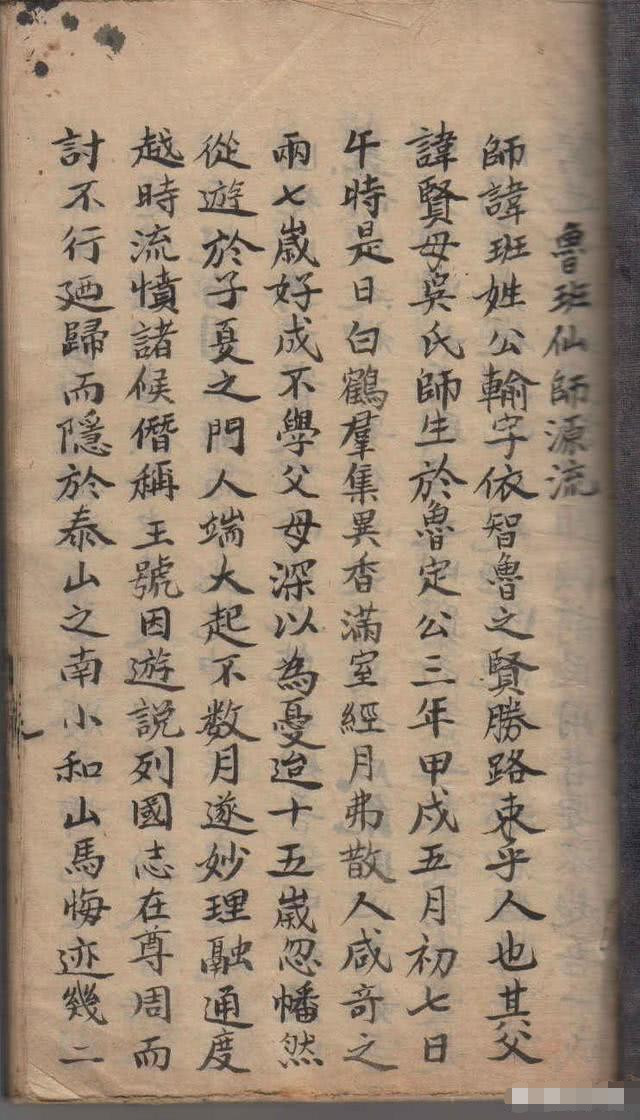 魯班仙師源流
師諱班姓公輸字依智魯之賢勝路東乎人也其父
諱賢母吳氏師生於魯定公三年甲戌五月初七日
午時是日白鶴羣集異香滿室經月弗散人咸奇之
兩七嵗好成不學父母深以為憂迨十五嵗忽幡然
從遊於子夏之門人端大起不数月遂妙理融通度
越時流憤諸候僭稱王號因遊説列國志在尊周而
討不行廼歸而隱於泰山之南小和山馬悔迹幾二